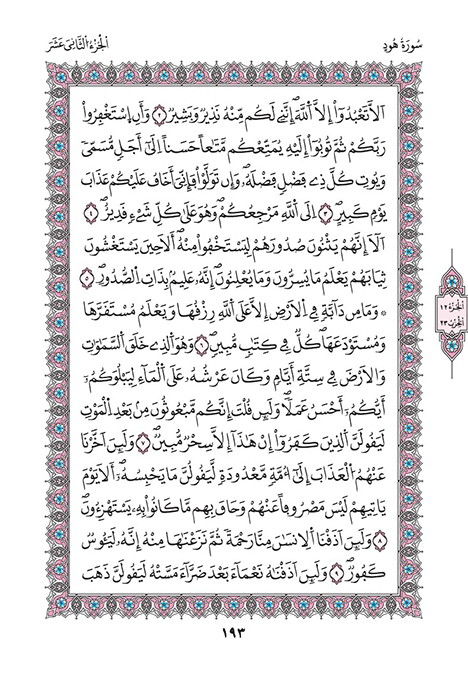 سُورَةُ هُودٍ
اَلْجُزْءُ الثَّانِي عَشَرَ
اَلَّا تَعْبُدُوٓا۟ إِلَّا اَللَّهَ إِنَّنِے لَكُم مِّنْهُ نَذِيرٌ وَبَشِيرٌ ٢ وَأَنِ اِسْتَغْفِرُوا۟
رَبَّكُمْ ثُمَّ تُوبُوٓا۟ إِلَيْهِ يُمَتِّعْكُم مَّتَٰعاً حَسَناً إِلَىٰٓ أَجَلٖ مُّسَمّىٗ
وَيُوتِ كُلَّ ذِے فَضْلٖ فَضْلَهُۥ وَإِن تَوَلَّوْا۟ فَإِنِّيَ أَخَافُ عَلَيْكُمْ عَذَابَ
يَوْمٖ كَبِيرٍ ٣ اِلَى اَللَّهِ مَرْجِعُكُمْ وَهُوَ عَلَىٰ كُلِّ شَےْءٖ قَدِيرٌ ٤
اَلَآ إِنَّهُمْ يَثْنُونَ صُدُورَهُمْ لِيَسْتَخْفُوا۟ مِنْهُ أَلَا حِينَ يَسْتَغْشُونَ
ثِيَابَهُمْ يَعْلَمُ مَا يُسِرُّونَ وَمَا يُعْلِنُونَ إِنَّهُۥ عَلِيمٌۢ بِذَاتِ اِلصُّدُورِ ٥
۞ وَمَا مِن دَآبَّةٖ فِے اِلْأَرْضِ إِلَّا عَلَى اَللَّهِ رِزْقُهَا وَيَعْلَمُ مُسْتَقَرَّهَا
وَمُسْتَوْدَعَهَا كُلّٞ فِے كِتَٰبٖ مُّبِينٖ ٦ وَهُوَ اَلذِے خَلَقَ اَلسَّمَٰوَٰتِ
وَالْأَرْضَ فِے سِتَّةِ أَيَّامٖ وَكَانَ عَرْشُهُۥ عَلَى اَلْمَآءِ لِيَبْلُوَكُمُۥٓ
أَيُّكُمُۥٓ أَحْسَنُ عَمَلاً وَلَئِن قُلْتَ إِنَّكُم مَّبْعُوثُونَ مِنۢ بَعْدِ اِلْمَوْتِ
لَيَقُولَنَّ اَلذِينَ كَفَرُوٓا۟ إِنْ هَٰذَآ إِلَّا سِحْرٌ مُّبِينٌ ٧ وَلَئِنَ اَخَّرْنَا
عَنْهُمُ اُلْعَذَابَ إِلَىٰٓ أُمَّةٖ مَّعْدُودَةٖ لَّيَقُولُنَّ مَا يَحْبِسُهُۥٓ أَلَا يَوْمَ
يَاتِيهِمْ لَيْسَ مَصْرُوفاً عَنْهُمْ وَحَاقَ بِهِم مَّا كَانُوا۟ بِهِۦ يَسْتَهْزِءُونَ
٨ وَلَئِنَ اَذَقْنَا اَلْإِنسَٰنَ مِنَّا رَحْمَةٗ ثُمَّ نَزَعْنَٰهَا مِنْهُ إِنَّهُۥ لَيَـُٔوسٌ
كَفُورٌ ٩ وَلَئِنَ اَذَقْنَٰهُ نَعْمَآءَ بَعْدَ ضَرَّآءَ مَسَّتْهُ لَيَقُولَنَّ ذَهَبَ
اَلْجُزْءُ ١٢
اَلْحِزْبُ ٢٣
١٩٣